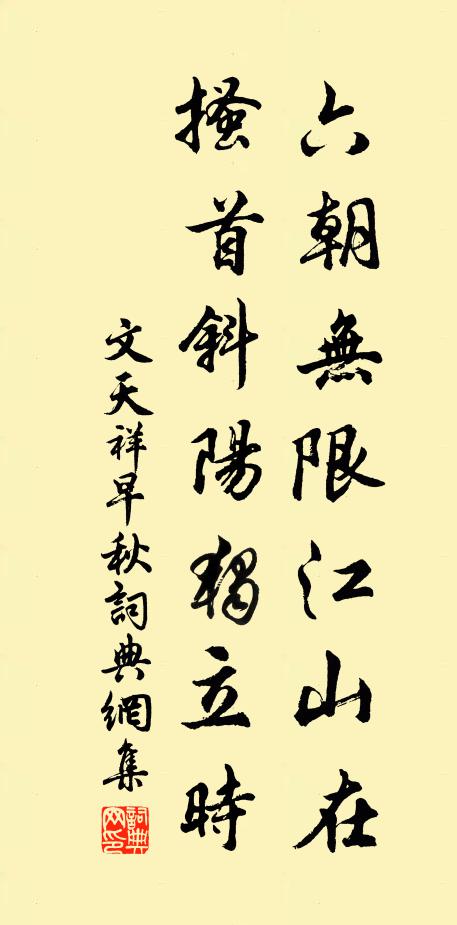 六朝無限江山在
搔首斜陽獨立時
文天祥早秋詞典網集
詞典網印